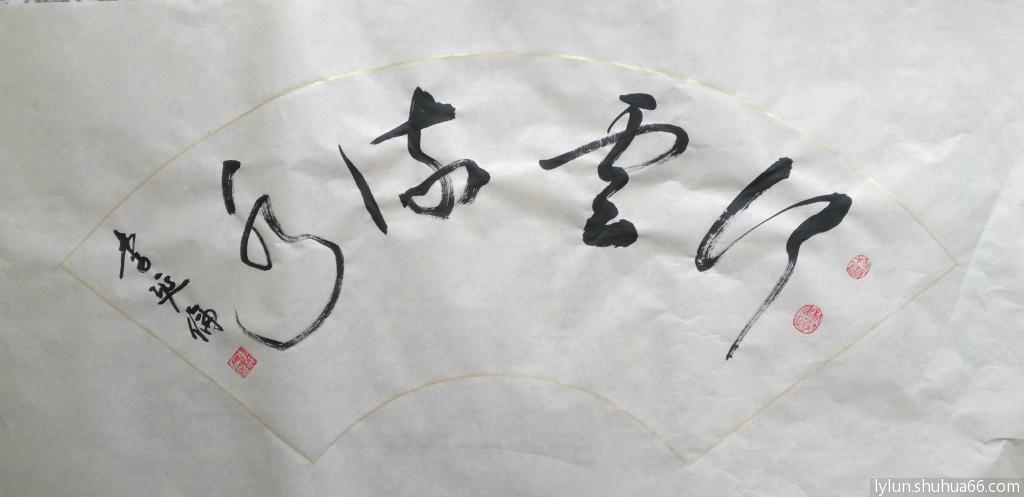 行雲流水
李平倫
lylun.shuhua66.com